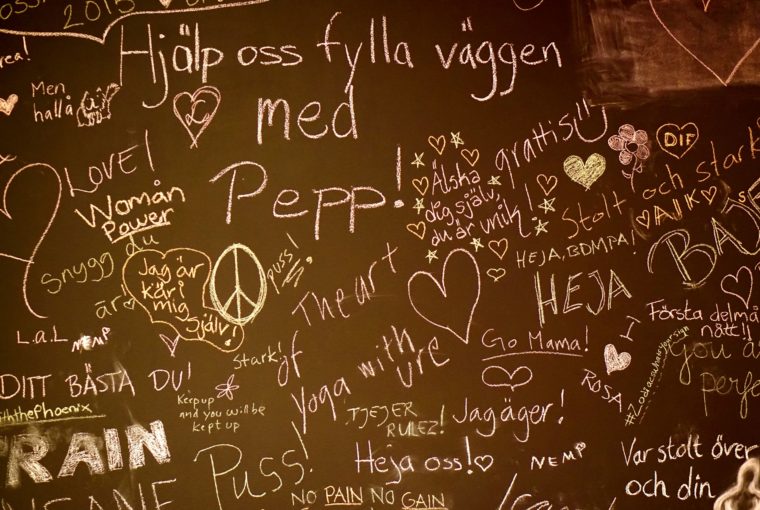 2015
rea!
Hjälp oss fylla väggen
med
Pepp!
Men
hallå
LOVE!
WOMAN
POWER
Snygg
du
är
Jag är
kär i
mig
själv!
puss!
Älska
dig själv,
du är unik!
grattis!!
DIF
Stolt och stark
AIK
HEJA, BDMPA!
HEJA
BAJ
The art
of
Yoga with
ure
Go Mama!
Första delmå
nått!!
L.a.L
NEMP
DITT BÄSTA DU!
iththephoenix
Stark!
Keep up
and you will be
kept up
TJEJER
RULEZ!
Jag äger!
ROSA
you ä
perfe
TRAIN
INSANE
Puss!
Heja oss!
NEMP
NO PAIN NO GAIN
Var stolt över
och din